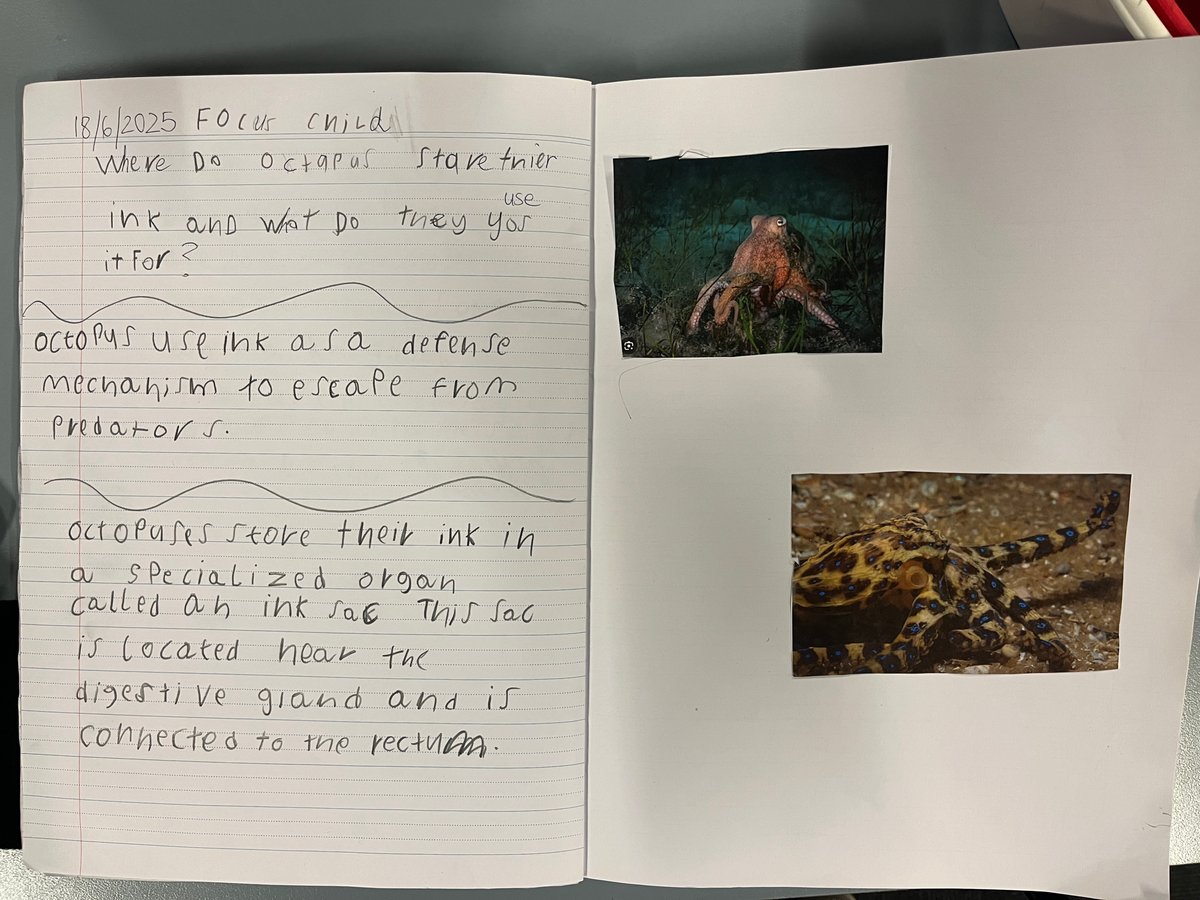 18/6/2025 FOcus child
Where Do octapus stare thier
use
ink and what Do they yos
it For?
octopus use ink as a defense
mechanism to escape from
predators.
octopuses store their ink in
a specialized organ
called an ink sac This sac
is located near the
digestive gland and is
connected to the rectum.